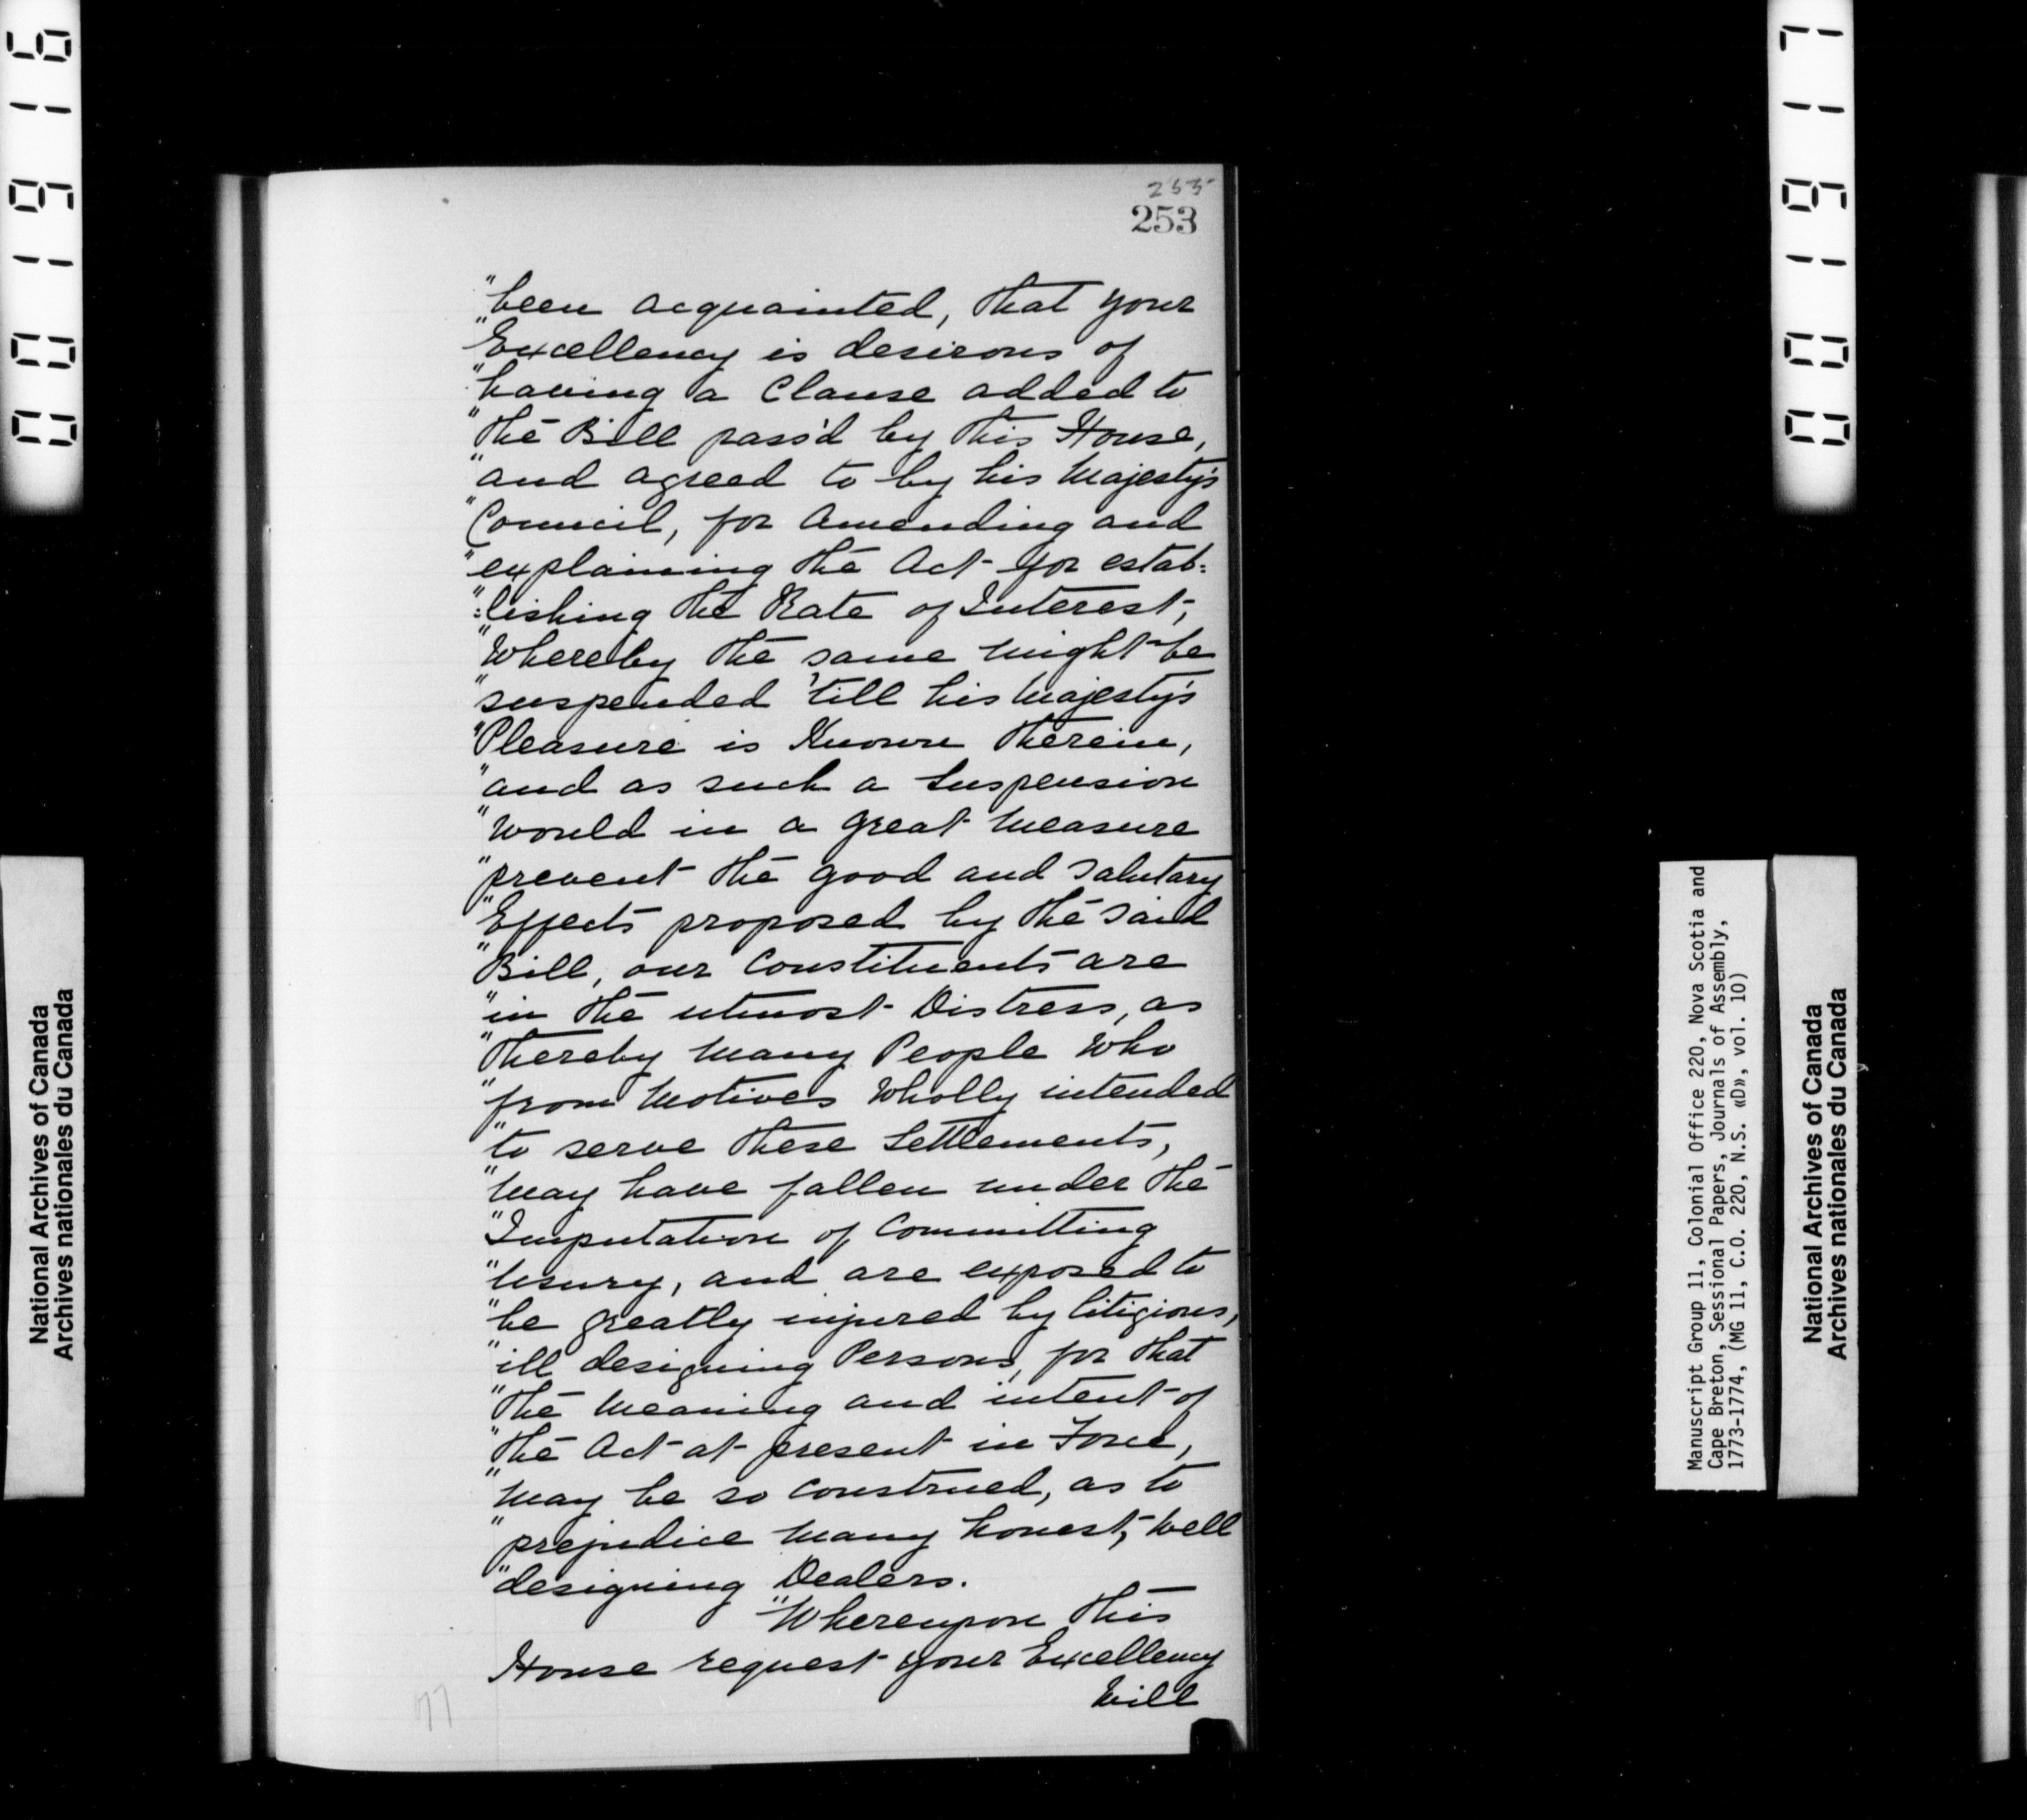 001916
001917
255
253
"been acquainted, that your
"Excellency is desirous of
"having a Clause added to
"the Bill pass'd by this House,
"and agreed to by his Majesty's
"Council, for Amending and
"explaining the Act for estab:
":lishing the Rate of Interest,
"Whereby the same might be
"suspended 'till his Majesty's
"Pleasure is Known therein,
"and as such a Suspension
"would in a great Measure
"prevent the good and Salutary
"Effects proposed by the said
"Bill, our Constituents are
"in the utmost Distress, as
"thereby Many People Who
"from Motives Wholly intended
"to serve these Settlements,
"May have fallen under the
"Imputation of Committing
"Usury, and are exposed to
"be greatly injured by litigious,
"ill designing Persons, for that
"the Meaning and intent of
"the Act at present in Force,
"May be so Construed, as to
"prejudice Many honest, Well
"designing Dealers.
"Whereupon this
House request your Excellency
Will
77
National Archives of Canada
Archives nationales du Canada
Manuscript Group 11, Colonial Office 220, Nova Scotia and
Cape Breton, Sessional Papers, Journals of Assembly,
1773-1774, (MG 11, C.O. 220, N.S. «D», vol. 10)
National Archives of Canada
Archives nationales du Canada